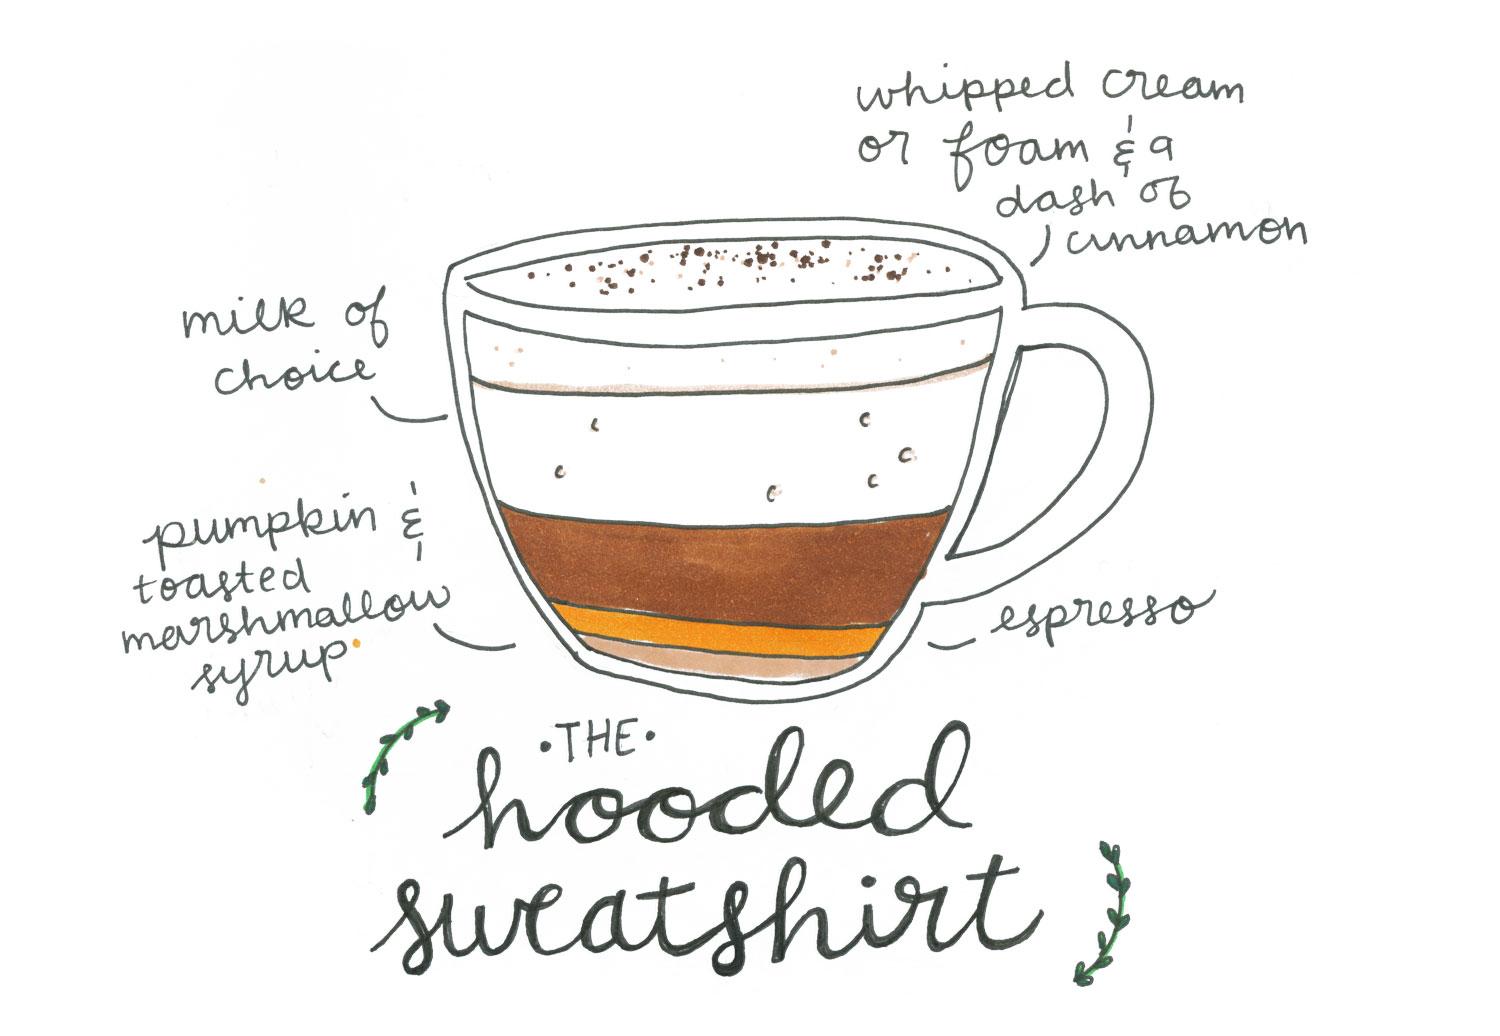 whipped cream
or foam & a
dash of
cinnamon
milk of
choice
pumpkin &
toasted
marshmallow
syrup
espresso
•THE•
hooded
sweatshirt